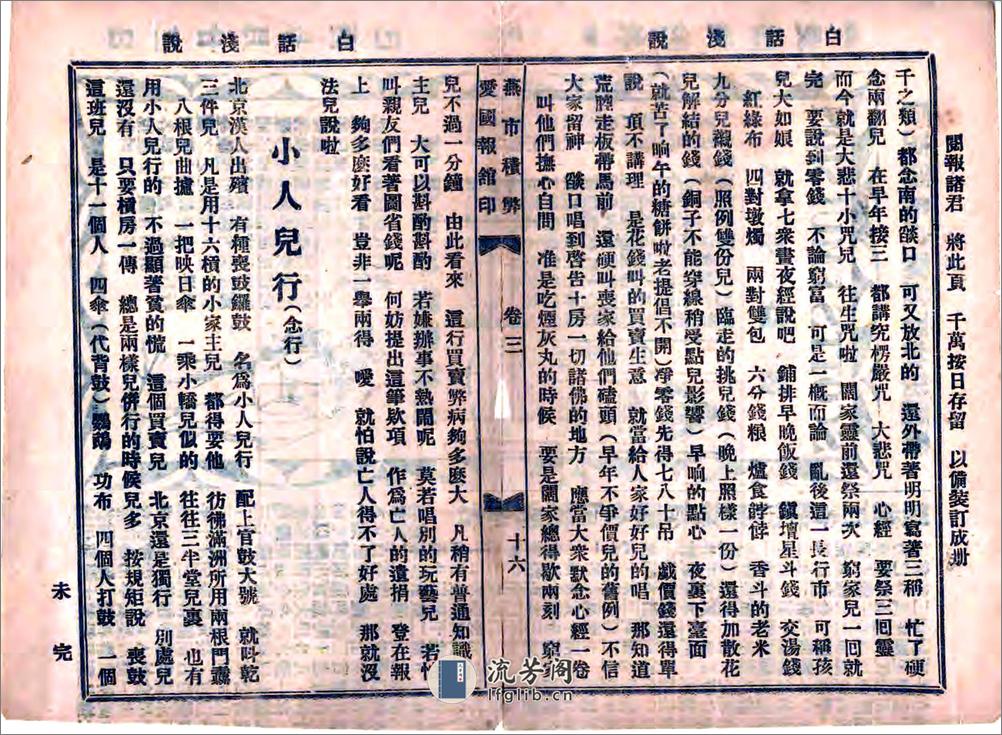 白話淺說
白話淺說
閱報諸君　將此頁　千萬按日存留　以備裝訂成册
千之類）都念南的燄口　可又放北的　還外帶著明明寫著三稱　忙了硬
念兩翻兒　在早年接三　都講究楞嚴咒　大悲咒　心經　要祭三囘靈
而今就是大悲十小咒兒　往生咒啦　闊家靈前還祭兩次　窮家兒一回就
完　要說到零錢　不論窮富　可是一槪而論　亂後這一長行市　可稱孩
兒大如娘　就拿七衆晝夜經說吧　鋪排早晚飯錢　鎭壇星斗錢　交湯錢
紅緣布　四對墩燭　兩對雙包　六分錢粮　爐食餑餑　香斗的老米
九分兒襯錢（照例雙份兒）臨走的挑兒錢（晚上照樣一份）還得加散花
兒解結的錢（銅子不能穿線稍受點兒影響）早晌的點心　夜裏下臺面
（就苦了晌午的糖餅啦老提倡不開）凈零錢先得七八十吊　戲價錢還得單
說　頂不講理　是花錢叫的買賣生意　就當給人家好好兒的唱　那知道
荒腔走板帶馬前　還硬叫喪家給他們磕頭（早年不爭價兒的舊例）不信
大家留神　燄口唱到啓告十房一切諸佛的地方　應當大衆默念心經一卷
叫他們撫心自問　准是吃煙灰丸的時候　要是闊家總得歇兩刻　窮家
燕市積弊　卷三　十六
愛國報舘印
兒不過一分鐘　由此看來　這行買賣弊病夠多麼大　凡稍有普通知識
主兒　大可以斟酌斟酌　若嫌辦事不熱鬧呢　莫若唱別的玩藝兒　若怕
叫親友們看著圖省錢呢　何妨提出這筆欵項　作爲亡人的遺捐　登在報
上　夠多麼好看　豈非一舉兩得　噯　就怕說亡人得不了好處　那就沒
法兒說啦
小人兒行（念行）
北京漢人出殯　有種喪鼓鑼鼓　名爲小人兒行　配上官鼓大號　就呌乾
三件兒　凡是用十六槓的小家主兒　都得要他　彷彿滿洲所用兩根門纛
八根兒曲攎　一把映日傘　一乘小轎兒似的　往往三半堂兒裏　也有
用小人兒行的　不過顯著貧的慌　這個買賣兒　北京還是獨行　別處兒
還沒有　只要槓房一傳　總是兩樣兒併行的時候兒多　按規矩說　喪鼓
這班兒　是十一個人　四傘（代背鼓）鸚鵡　功布　四個人打鼓　一個
未完
流芳閣
lfglib.cn